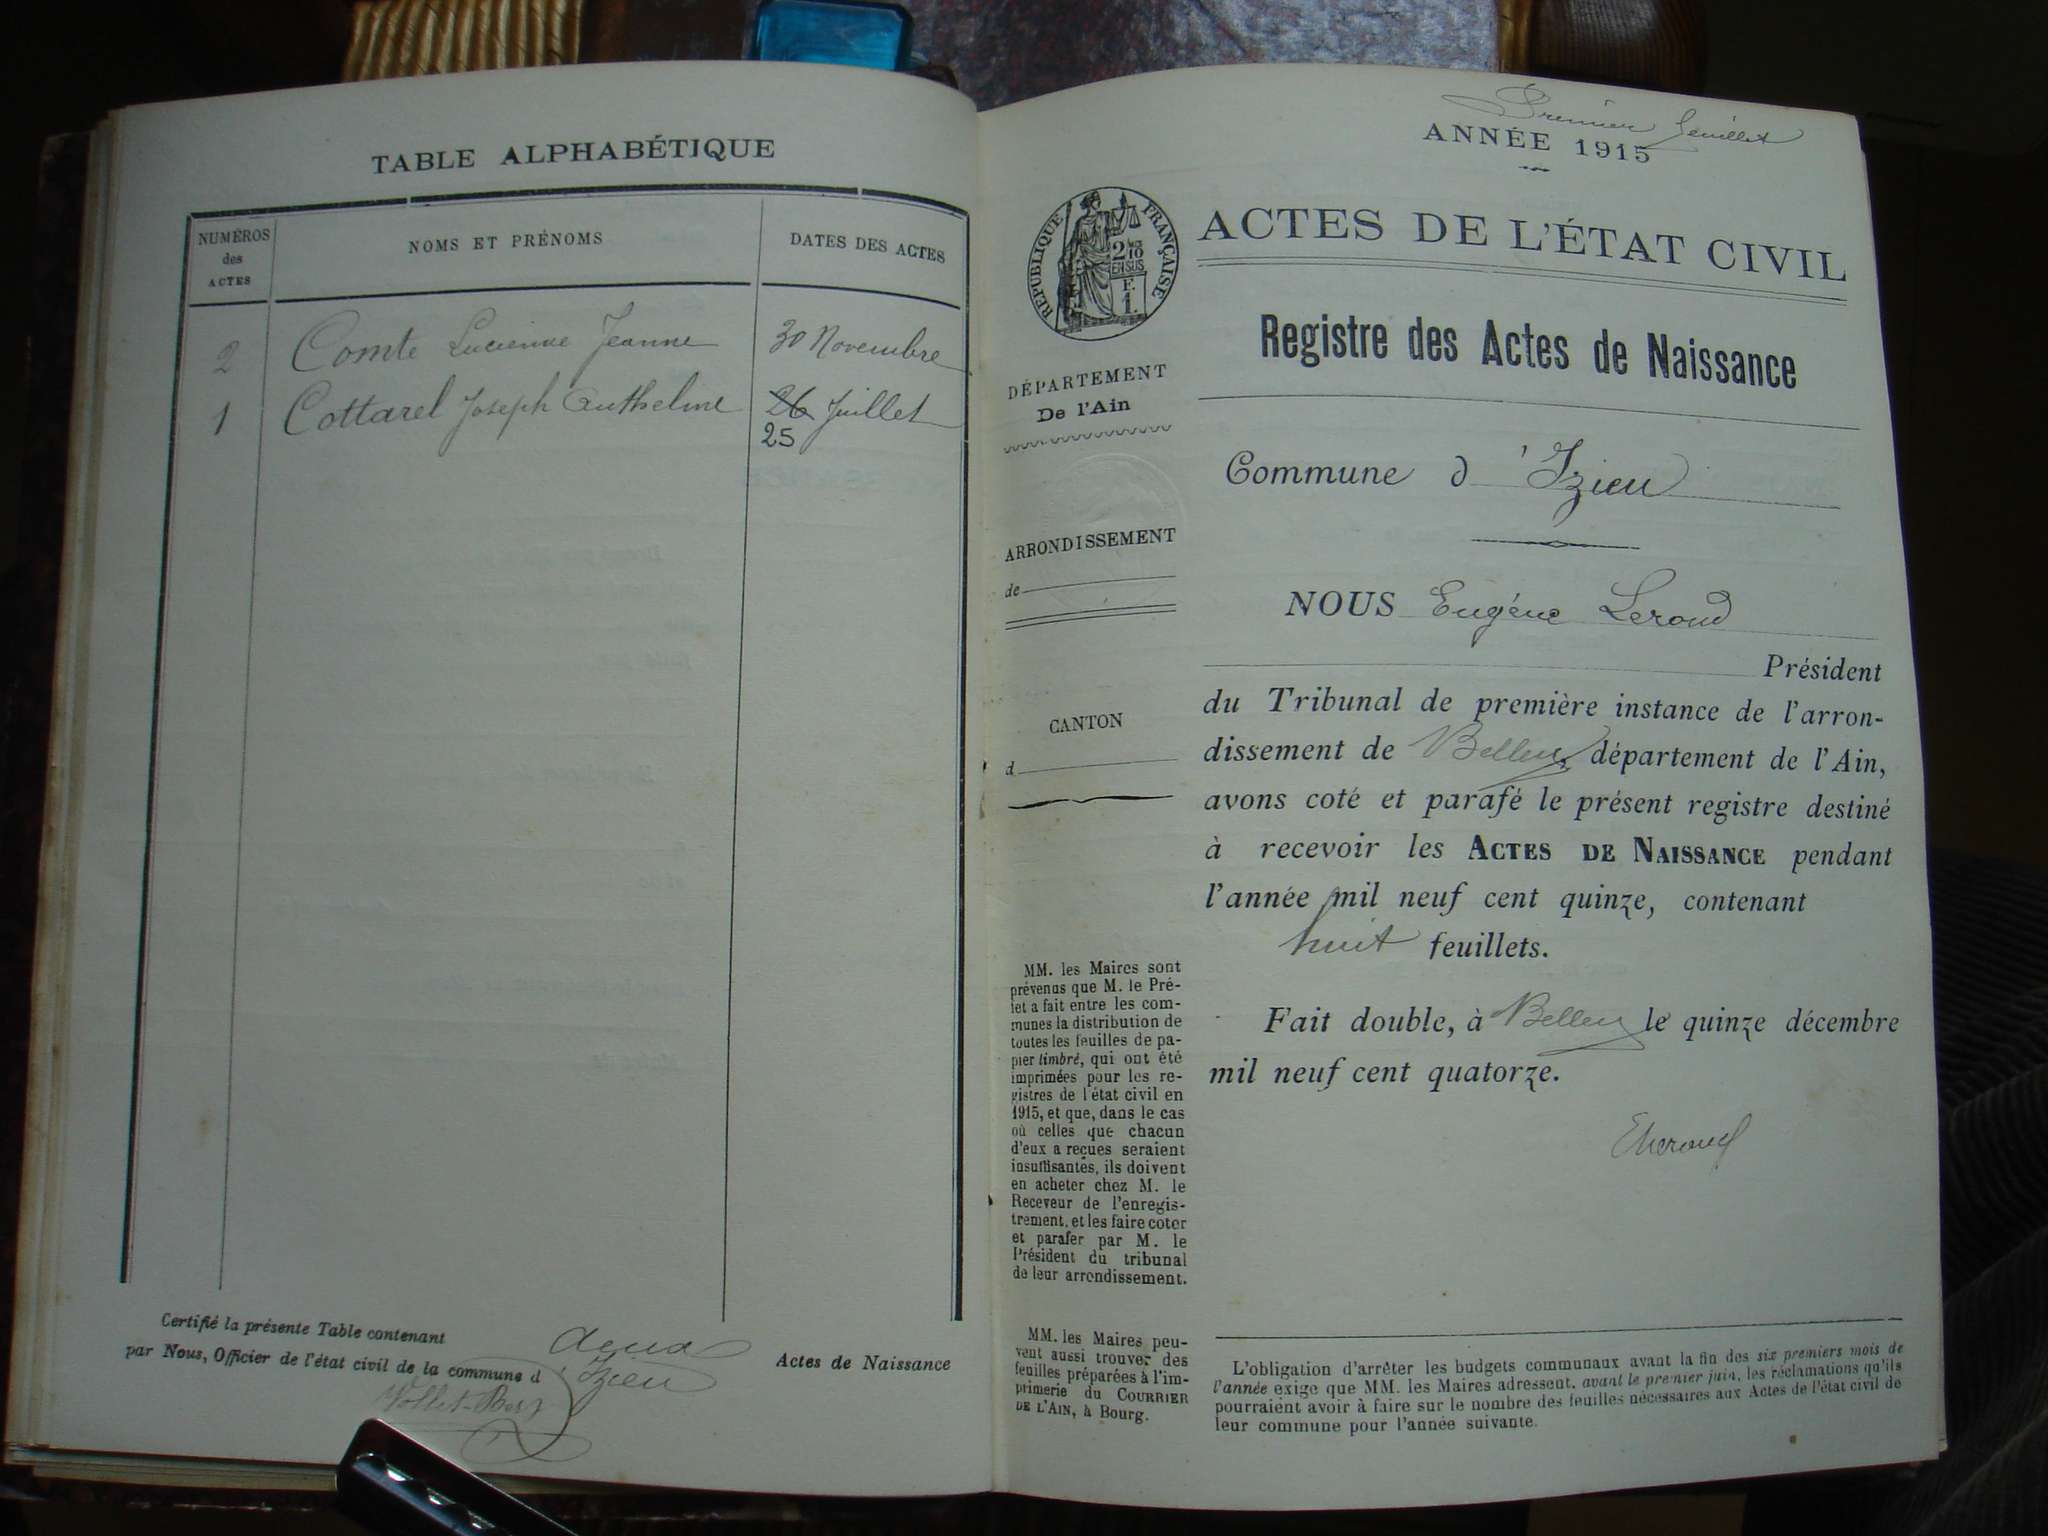 TABLE ALPHABÉTIQUE
NUMÉROS
des
ACTES
NOMS ET PRÉNOMS
DATES DES ACTES
2 Comte Lucienne Jeanne 30 Novembre
1 Cottarel Joseph Anthelme 26 Juillet
25
Certifié la présente Table contenant deux Actes de Naissance
par Nous, Officier de l'état civil de la commune d'Izieu
Premier feuillet
ANNÉE 1915
RÉPUBLIQUE FRANÇAISE
2/10
EN SUS
F.
1.
ACTES DE L'ÉTAT CIVIL
Registre des Actes de Naissance
DÉPARTEMENT
De l'Ain
Commune d'Izieu
ARRONDISSEMENT
de
NOUS Eugène Lerond
Président
CANTON
d
du Tribunal de première instance de l'arron-
dissement de Belley département de l'Ain,
avons coté et parafé le présent registre destiné
à recevoir les ACTES DE NAISSANCE pendant
l'année mil neuf cent quinze, contenant
huit feuillets.
Fait double, à Belley le quinze décembre
mil neuf cent quatorze.
MM. les Maires sont
prévenus que M. le Pré-
fet a fait entre les com-
munes la distribution de
toutes les feuilles de pa-
pier timbré, qui ont été
imprimées pour les re-
gistres de l'état civil en
1915, et que, dans le cas
où celles que chacun
d'eux a reçues seraient
insuffisantes, ils doivent
en acheter chez M. le
Receveur de l'enregis-
trement, et les faire coter
et parafer par M. le
Président du tribunal
de leur arrondissement.
MM. les Maires peu-
vent aussi trouver des
feuilles préparées à l'im-
primerie du COURRIER
DE L'AIN, à Bourg.
L'obligation d'arrêter les budgets communaux avant la fin des six premiers mois de
l'année exige que MM. les Maires adressent, avant le premier juin, les réclamations qu'ils
pourraient avoir à faire sur le nombre des feuilles nécessaires aux Actes de l'état civil de
leur commune pour l'année suivante.